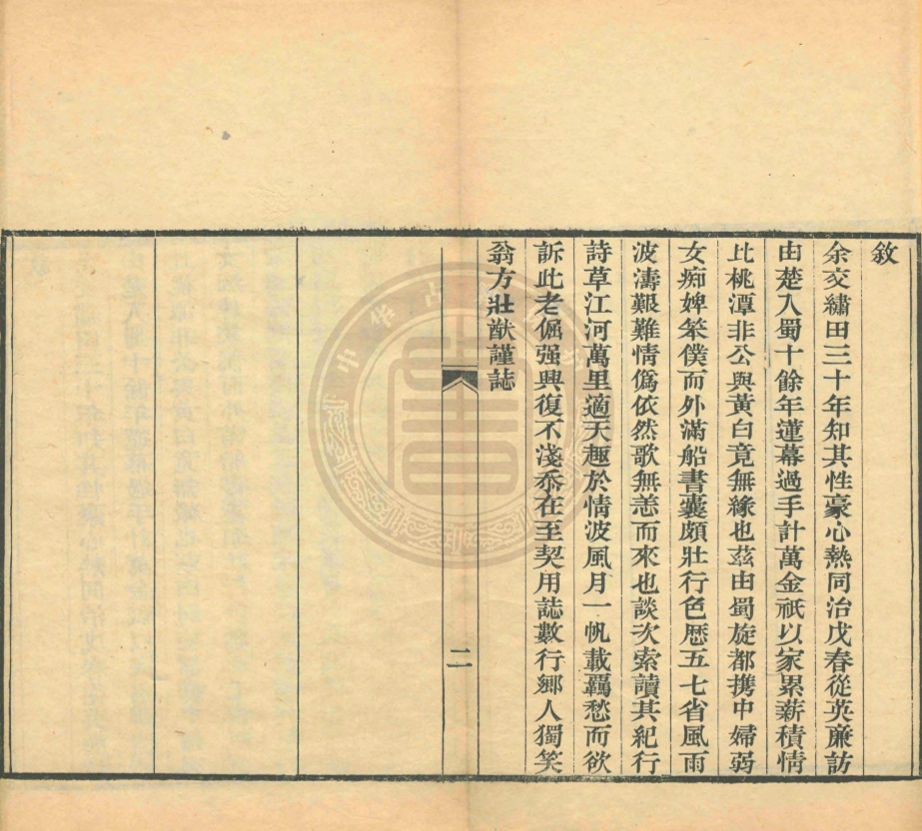 敘
余交繡田三十年知其性豪心熱同治戊春從英廉訪
由楚入蜀十餘年蓮幕過手計萬金祇以家累薪積情
比桃潭非公與黃白竟無緣也茲由蜀旋都携中婦弱
女痴婢笨僕而外滿船書囊頗壯行色歷五七省風雨
波濤艱難情僞依然歌無恙而來也談次索讀其紀行
詩草江河萬里適天趣於情波風月一帆載羈愁而欲
訴此老倔强興復不淺忝在至契用誌數行鄉人獨笑
翁方壯猷謹誌
二